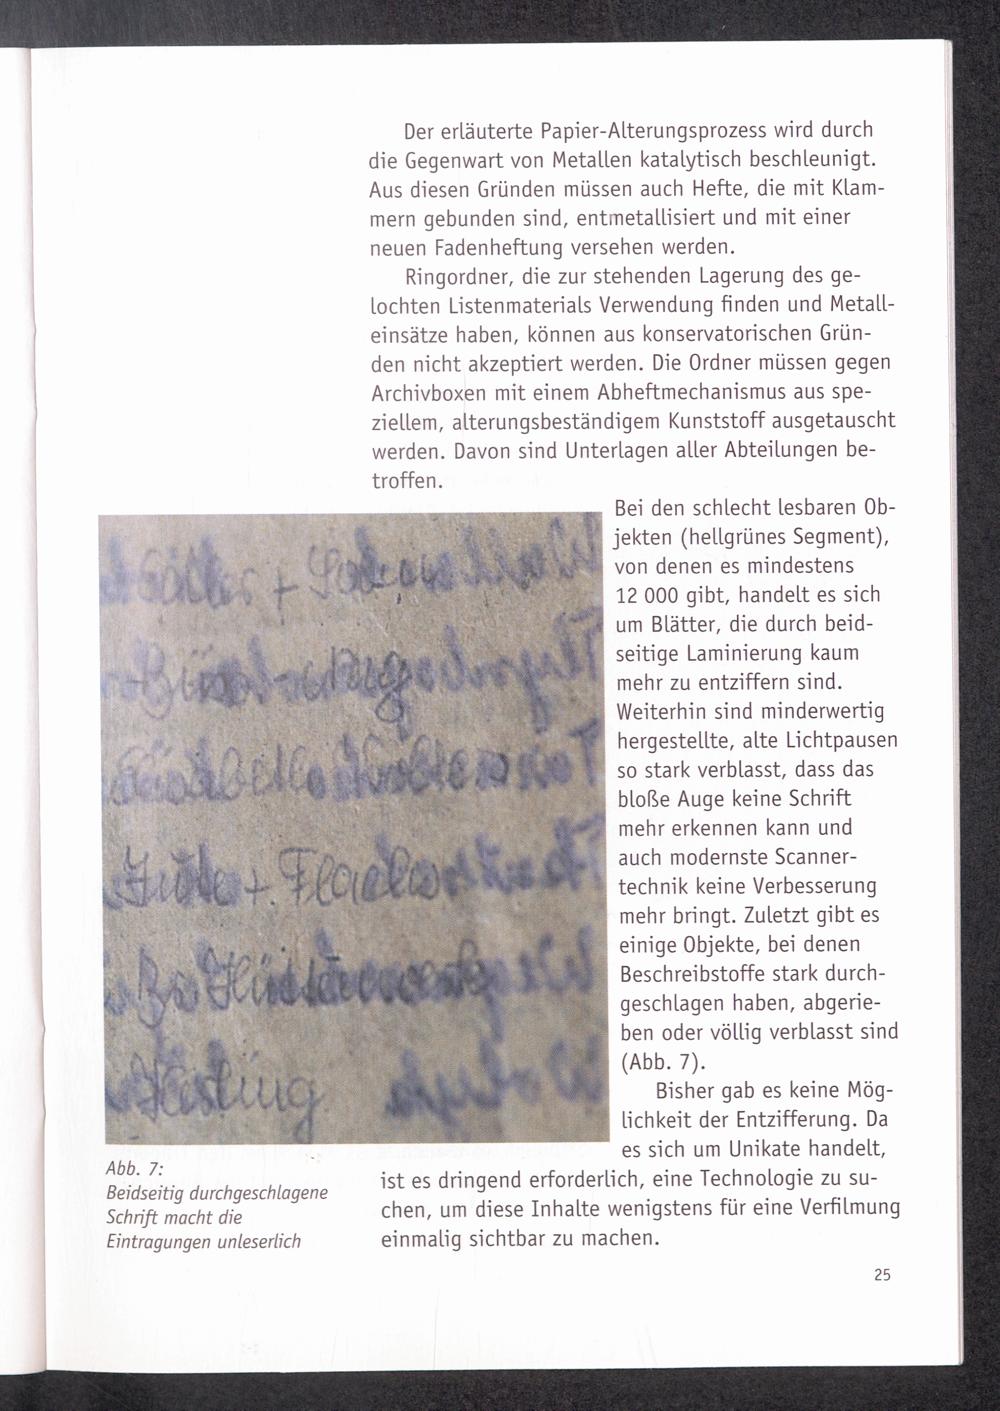 Der erläuterte Papier-Alterungsprozess wird durch
die Gegenwart von Metallen katalytisch beschleunigt.
Aus diesen Gründen müssen auch Hefte, die mit Klam-
mern gebunden sind, entmetallisiert und mit einer
neuen Fadenheftung versehen werden.
Ringordner, die zur stehenden Lagerung des ge-
lochten Listenmaterials Verwendung finden und Metall-
einsätze haben, können aus konservatorischen Grün-
den nicht akzeptiert werden. Die Ordner müssen gegen
Archivboxen mit einem Abheftmechanismus aus spe-
ziellem, alterungsbeständigem Kunststoff ausgetauscht
werden. Davon sind Unterlagen aller Abteilungen be-
troffen.
Bei den schlecht lesbaren Ob-
jekten (hellgrünes Segment),
von denen es mindestens
12 000 gibt, handelt es sich
um Blätter, die durch beid-
seitige Laminierung kaum
mehr zu entziffern sind.
Weiterhin sind minderwertig
hergestellte, alte Lichtpausen
so stark verblasst, dass das
bloße Auge keine Schrift
mehr erkennen kann und
auch modernste Scanner-
technik keine Verbesserung
mehr bringt. Zuletzt gibt es
einige Objekte, bei denen
Beschreibstoffe stark durch-
geschlagen haben, abgerie-
ben oder völlig verblasst sind
(Abb. 7).
Bisher gab es keine Mög-
lichkeit der Entzifferung. Da
es sich um Unikate handelt,
ist es dringend erforderlich, eine Technologie zu su-
chen, um diese Inhalte wenigstens für eine Verfilmung
einmalig sichtbar zu machen.
Abb. 7:
Beidseitig durchgeschlagene
Schrift macht die
Eintragungen unleserlich
25